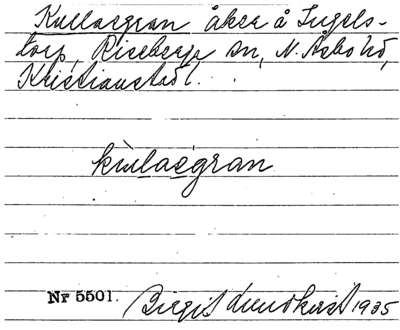 Kullaegran åker å Ingels-
torp, Riseberga sn, N. Åsbo hd,
Kristianstad l.
kùlaegran
Nr 5501. Birgit Lundkvist 1935